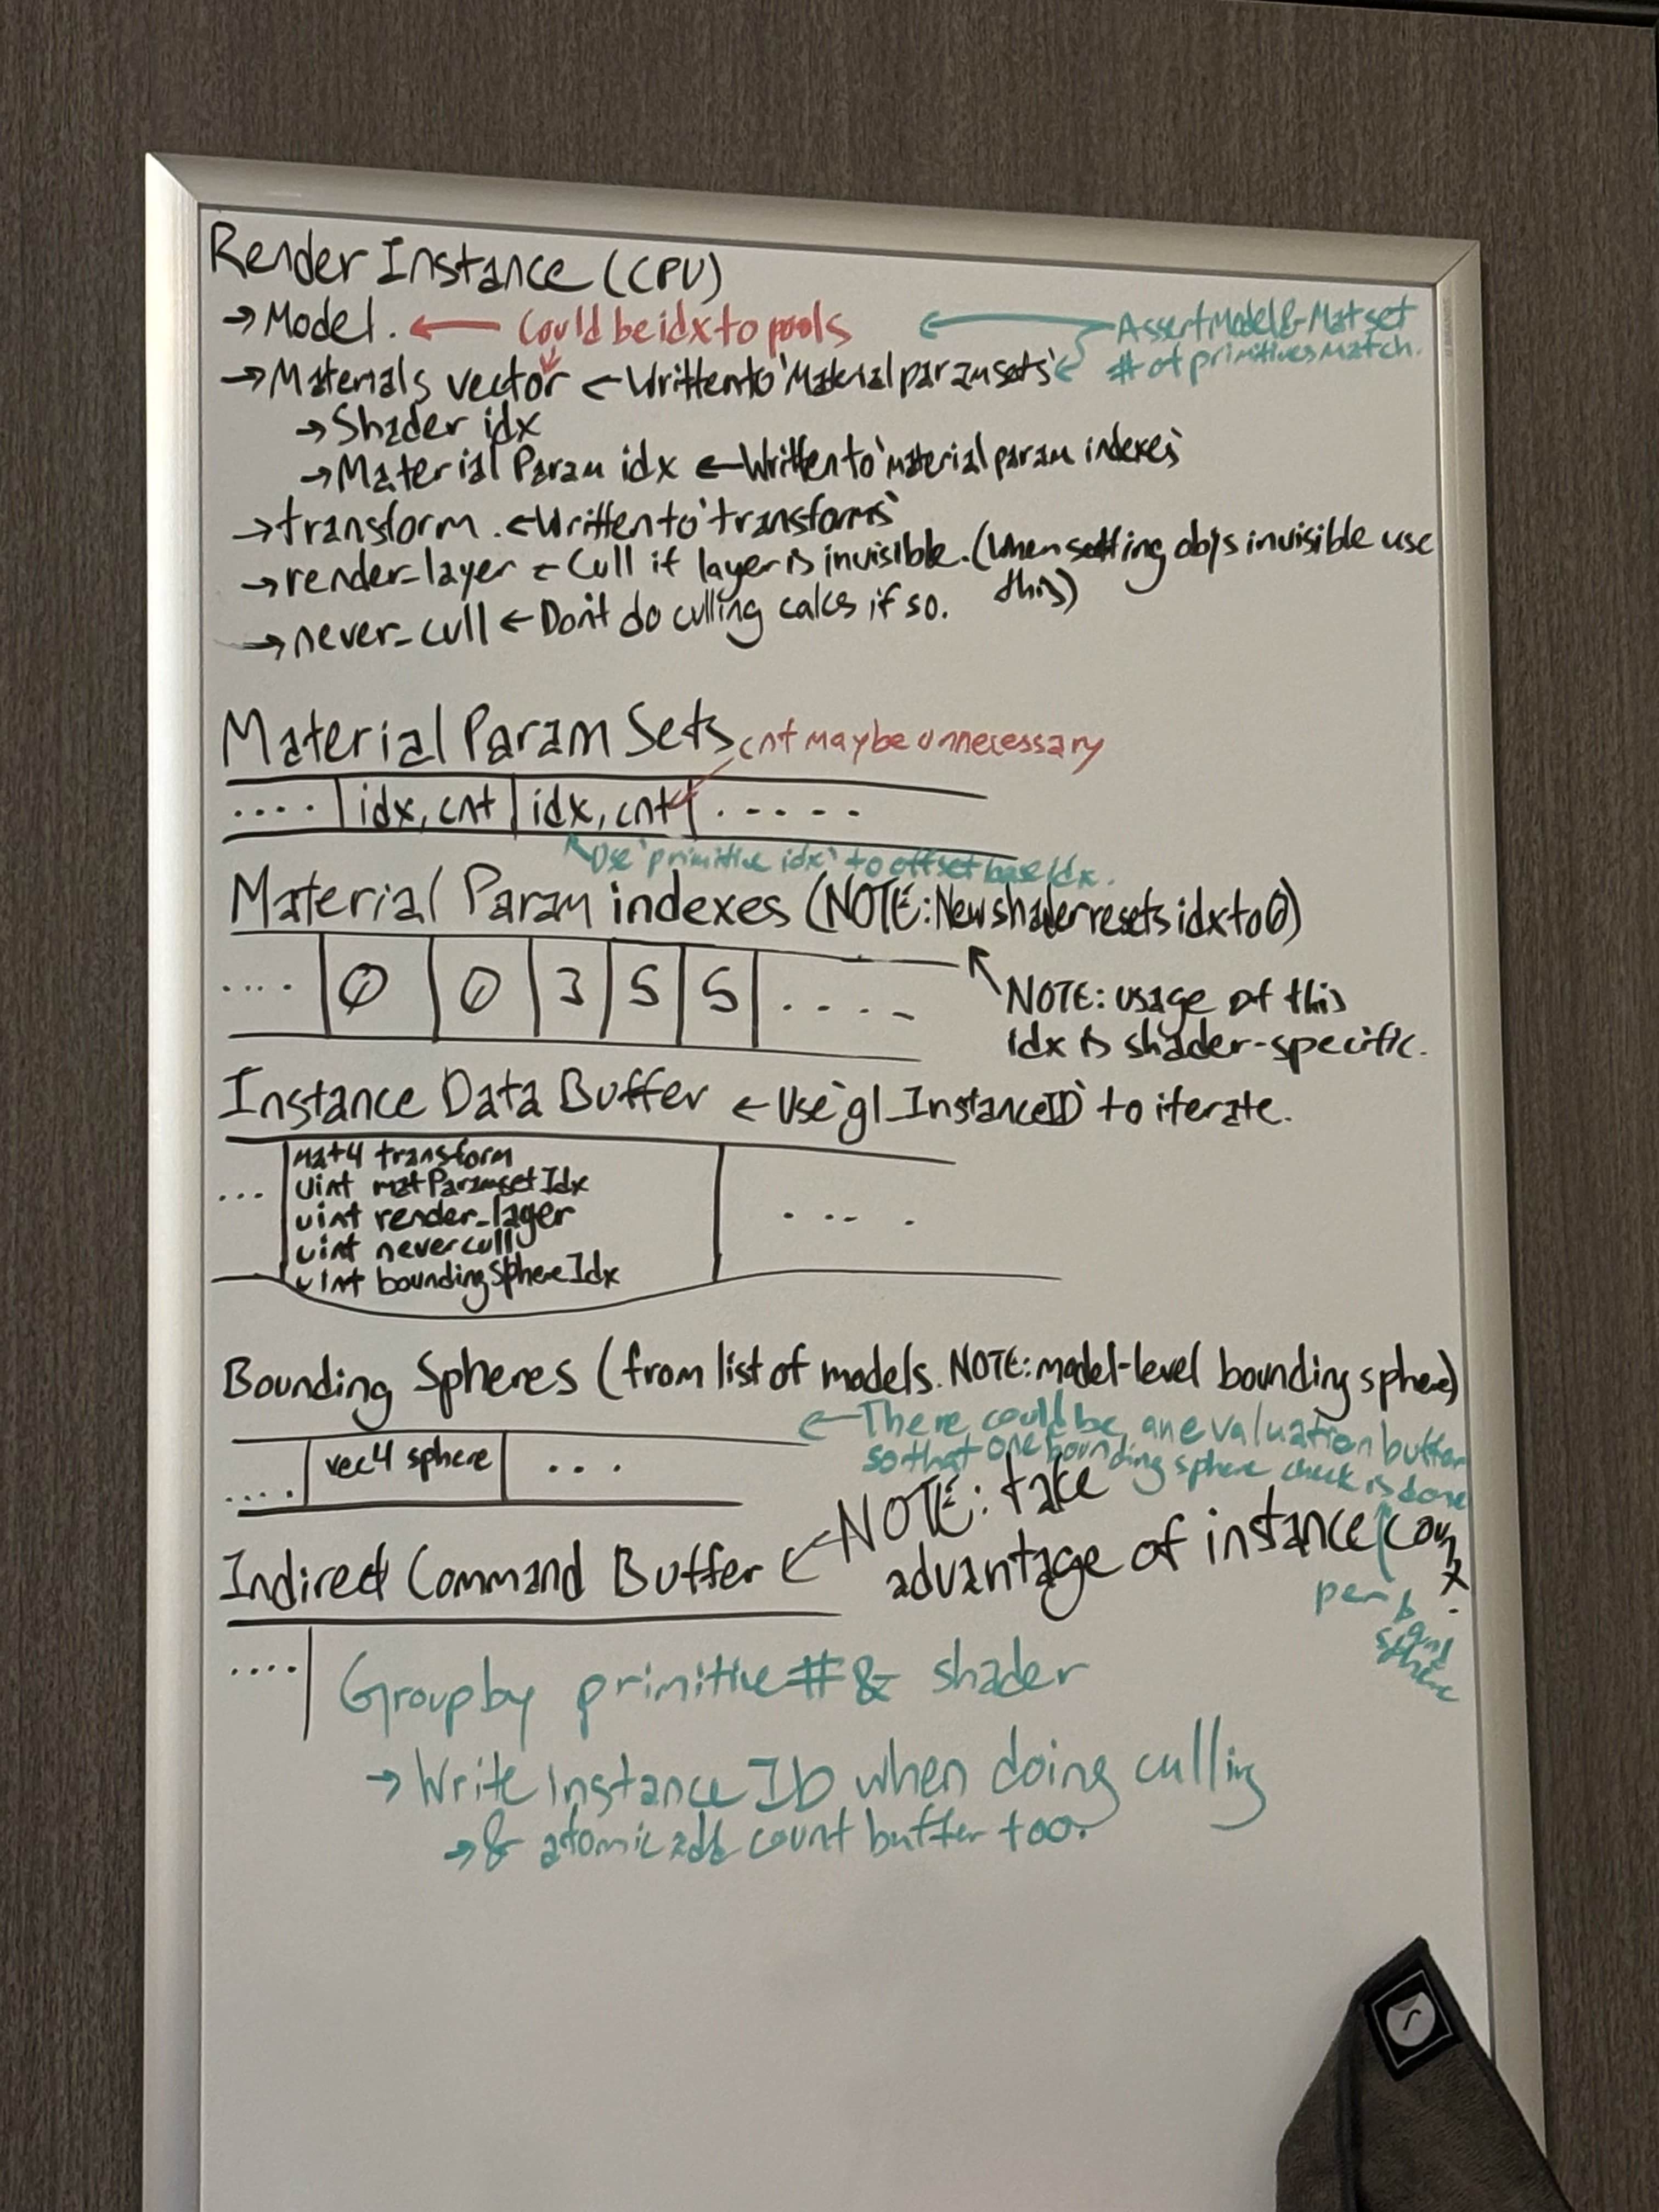 Render Instance (CPU)
→ Model. ← Could be idx to pools
← Assert Model & Mat set
# of primitives match.
→ Materials vector ← Written to `Material param sets`
→ Shader idx
→ Material Param idx ← Written to `material param indexes`
→ transform. ← Written to `transforms`
→ render_layer ← Cull if layer is invisible. (When setting objs invisible use
this)
→ never_cull ← Don't do culling calcs if so.
Material Param Sets cnt may be unnecessary
.... | idx, cnt | idx, cnt | .....
Use `primitive idx` to offset base idx.
Material Param indexes (NOTE: New shader resets idx to 0)
.... | 0 | 0 | 3 | 5 | 5 | ....
NOTE: usage of this
idx is shader-specific.
Instance Data Buffer ← Use `gl_InstanceID` to iterate.
mat4 transform
... uint matParamsetIdx
uint render_layer ....
uint nevercull
uint boundingSphereIdx
Bounding Spheres (from list of models. NOTE: model-level bounding sphere)
← There could be an evaluation buffer
so that one bounding sphere check is done
per bound
sphere
.... | vec4 sphere | ...
Indirect Command Buffer ← NOTE: take
advantage of instance count.
....
Group by primitive # & shader
→ Write instance ID when doing culling
→ & atomic add count buffer too.